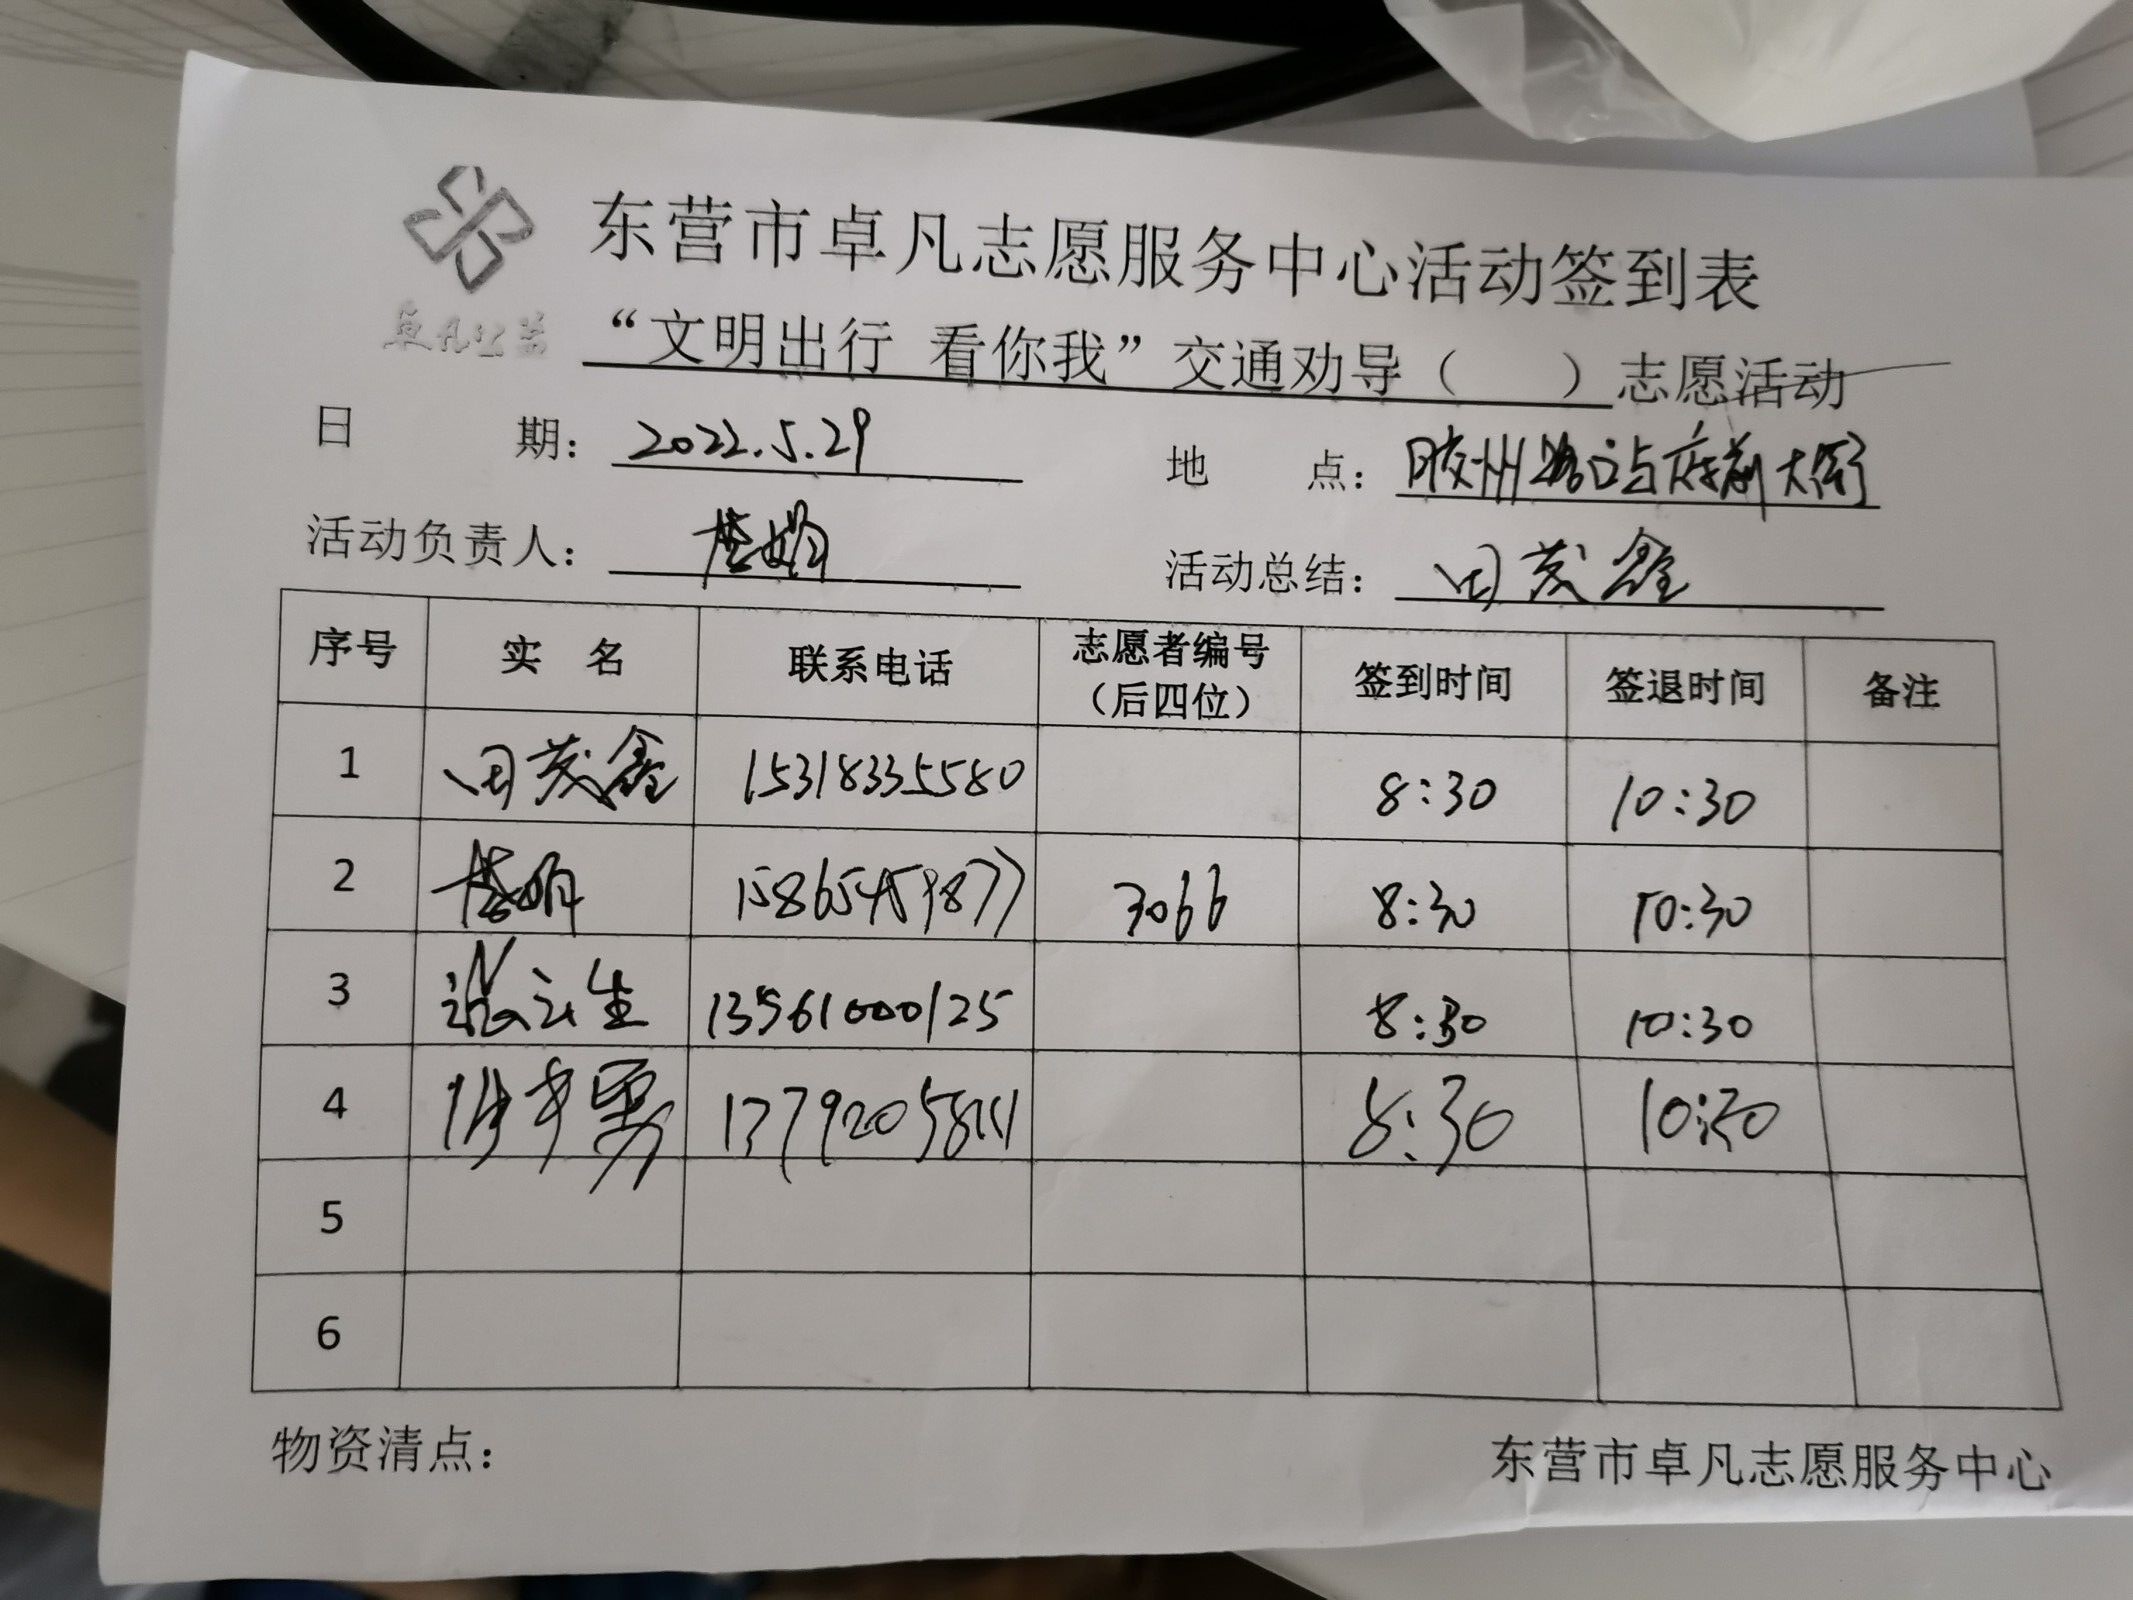 东营市卓凡志愿服务中心活动签到表
卓凡公益
“文明出行 看你我”交通劝导（ ）志愿活动
日 期：2022.5.29 地 点：胶州路口与府前大街
活动负责人： 活动总结：田茂鑫
序号 实 名 联系电话 志愿者编号（后四位） 签到时间 签退时间 备注
1 田茂鑫 15318335580 8:30 10:30
2 15865459877 3066 8:30 10:30
3 13561000125 8:30 10:30
4 8:30 10:30
5
6
物资清点： 东营市卓凡志愿服务中心